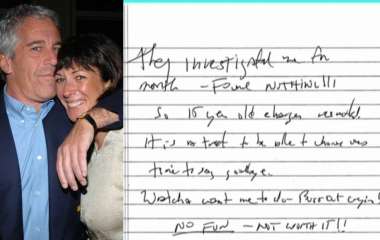 They investigated me for
month - Found NOTHING!!!
So 15 year old charges resulted.
It is a treat to be able to choose
time to say goodbye.
Watcha want me to do - Bust out cryin!!
NO FUN - NOT WORTH IT!!